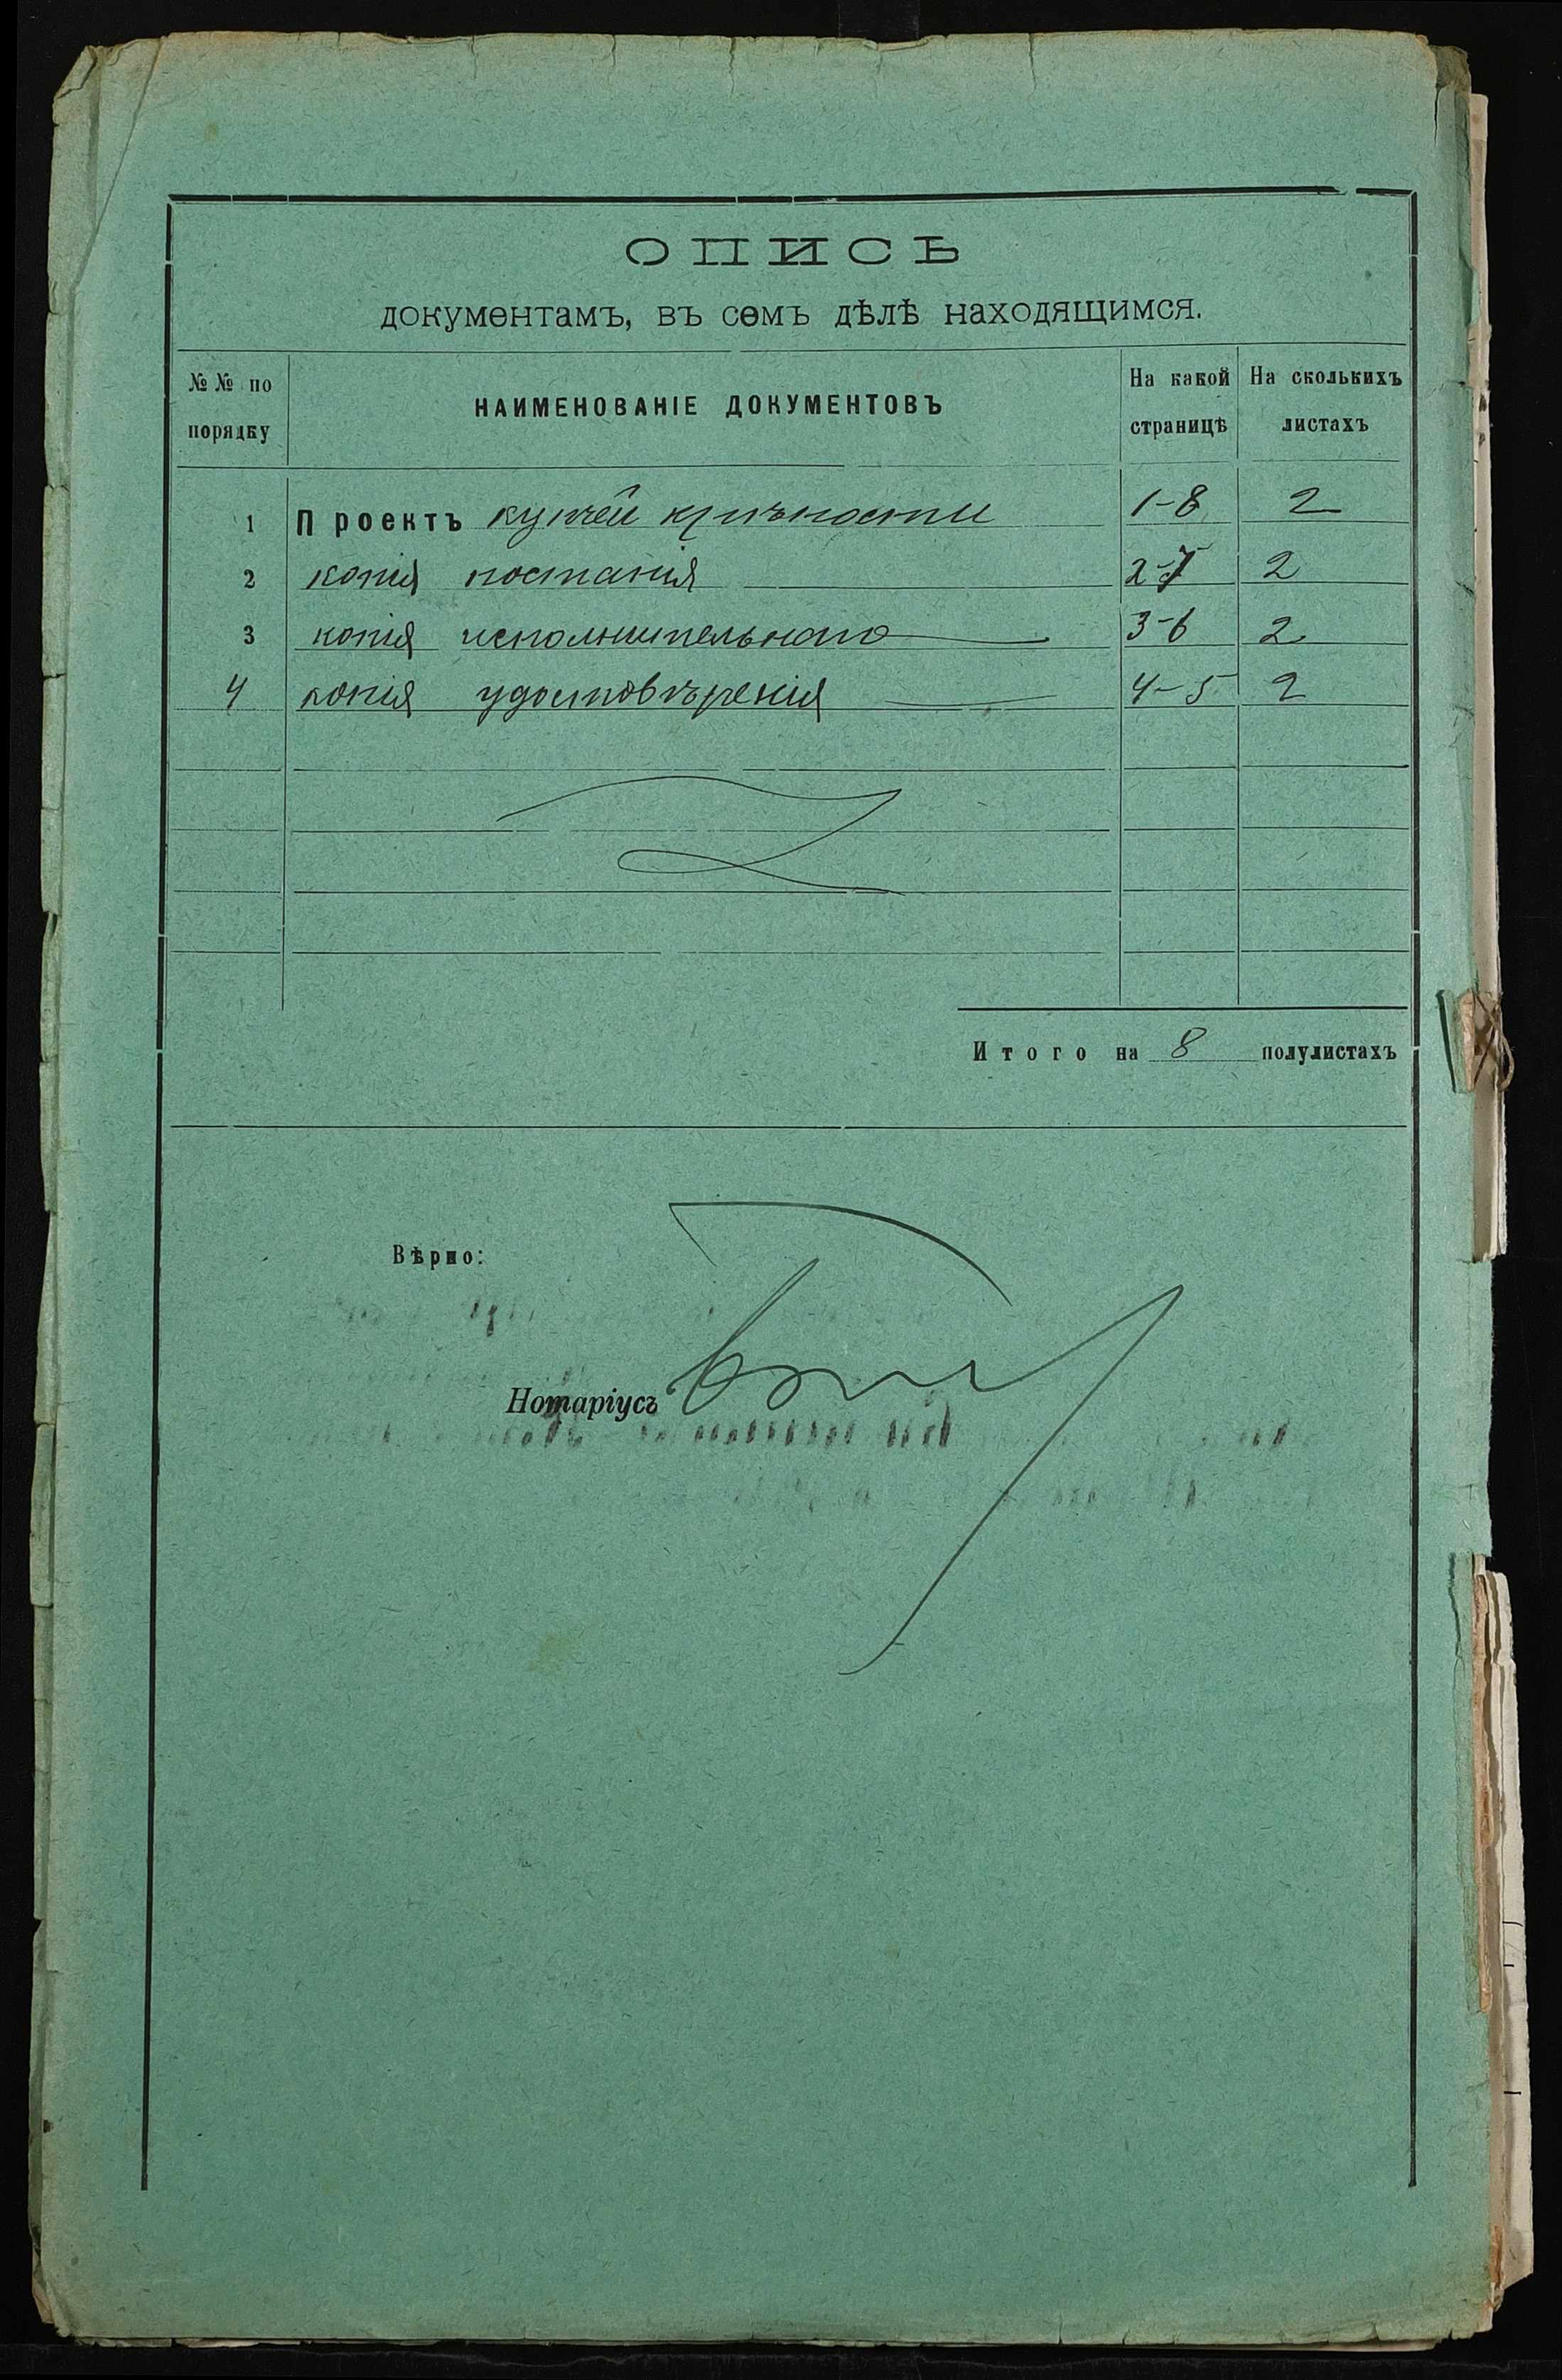 ОПИСЬ
документамъ, въ семъ дѣлѣ находящимся.
№№ по порядку
НАИМЕНОВАНІЕ ДОКУМЕНТОВЪ
На какой страницѣ
На сколькихъ листахъ
1 Проектъ купчей крѣпости 1-8 2
2 копія 2-7 2
3 копія исполнительнаго 3-6 2
4 копія удостовѣренія 4-5 2
Итого на 8 полулистахъ
Вѣрно:
Нотаріусъ